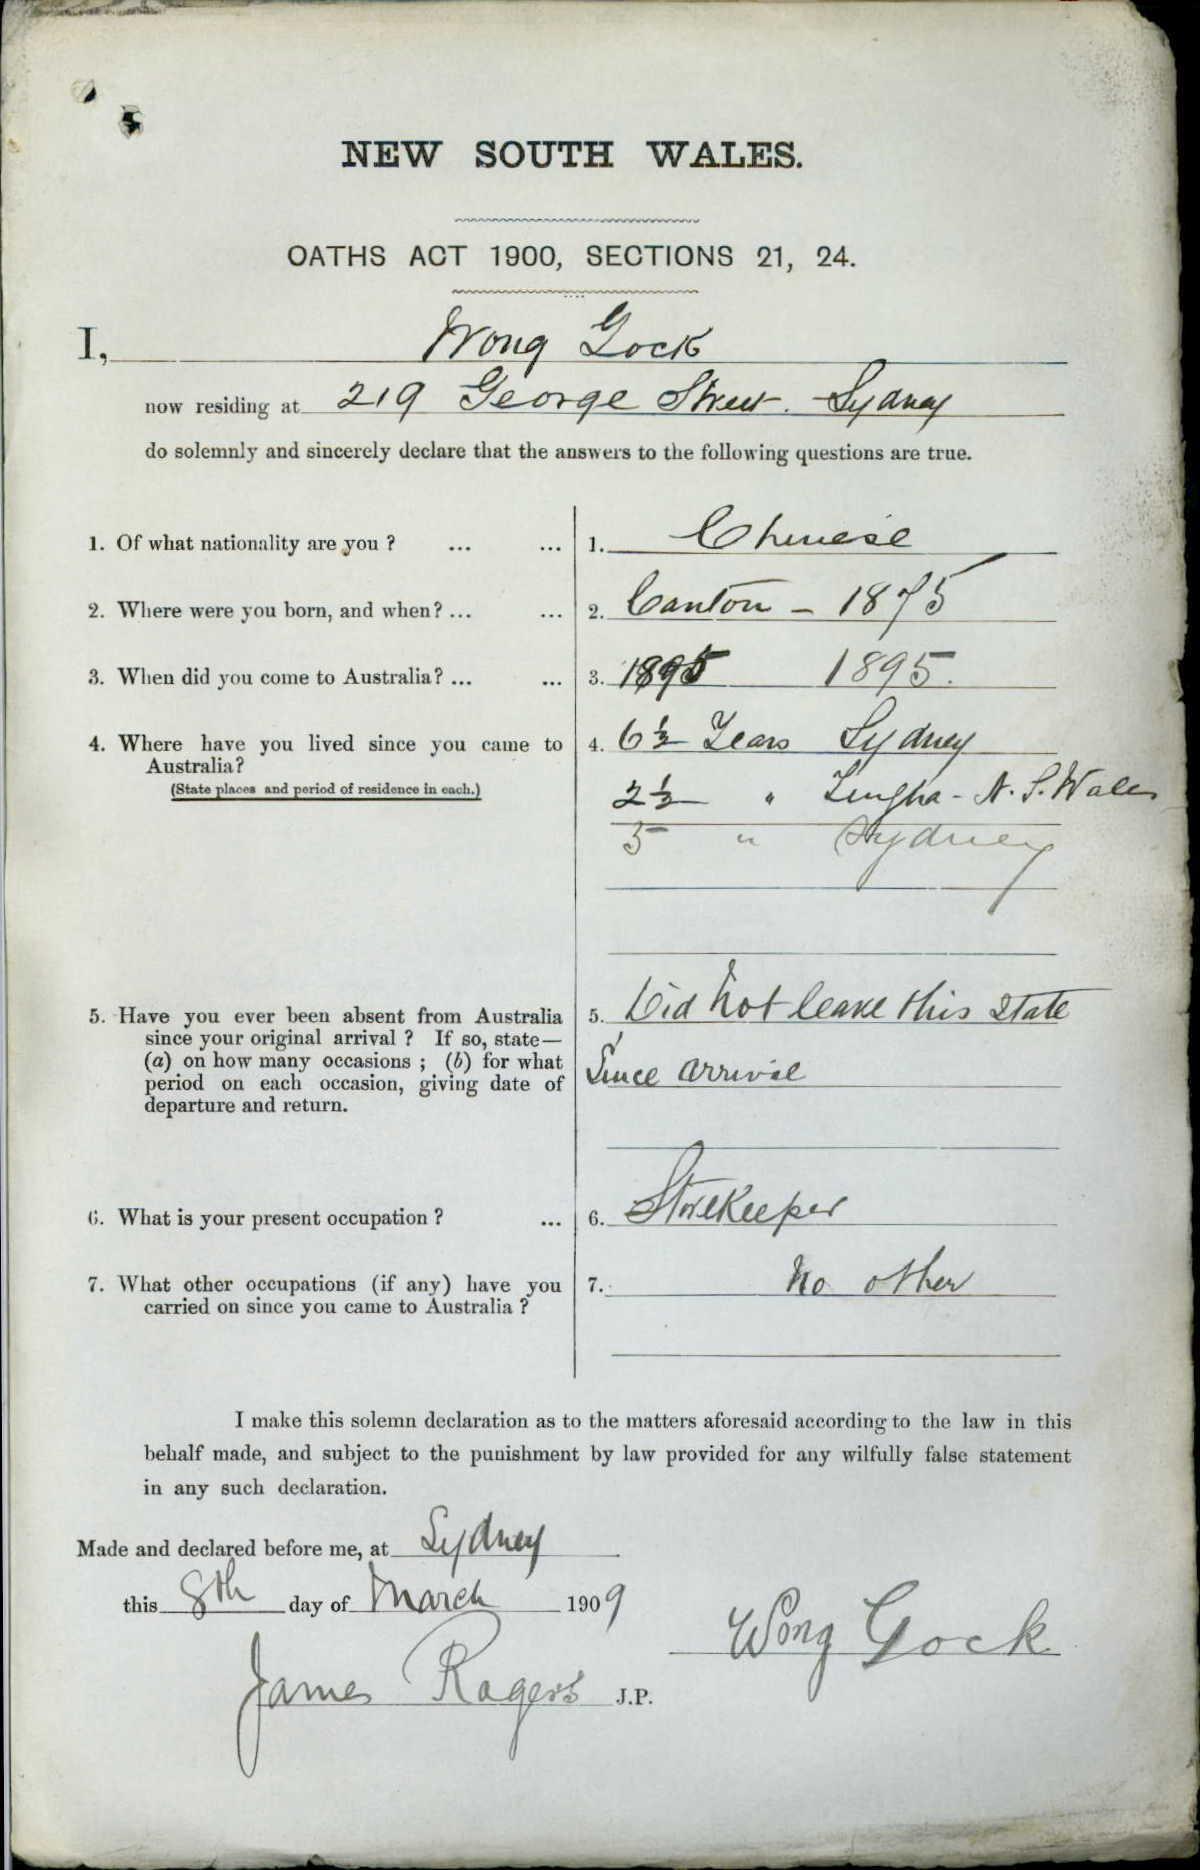 NEW SOUTH WALES.
OATHS ACT 1900, SECTIONS 21, 24.
I, Wong Gock
now residing at 219 George Street. Sydney
do solemnly and sincerely declare that the answers to the following questions are true.
1. Of what nationality are you ? ... ... 1. Chinese
2. Where were you born, and when? ... ... 2. Canton - 1875
3. When did you come to Australia? ... ... 3. 1895 1895.
4. Where have you lived since you came to 4. 6½ Years Sydney
Australia?
(State places and period of residence in each.) 2½ " Tingha - N. S. Wales
5 " Sydney
5. Have you ever been absent from Australia 5. Did Not leave this State
since your original arrival ? If so, state—
(a) on how many occasions ; (b) for what Since arrival
period on each occasion, giving date of
departure and return.
6. What is your present occupation ? ... 6. Storekeeper
7. What other occupations (if any) have you 7. No other
carried on since you came to Australia ?
I make this solemn declaration as to the matters aforesaid according to the law in this
behalf made, and subject to the punishment by law provided for any wilfully false statement
in any such declaration.
Made and declared before me, at Sydney
this 8th day of March 1909
Wong Gock
James Rogers J.P.